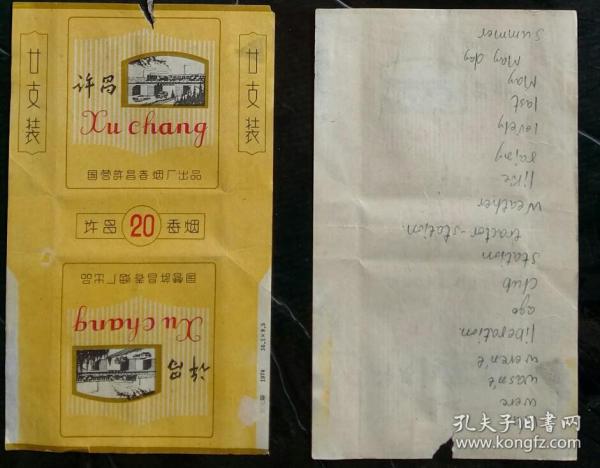 廿支装
许昌
Xu chang
国营許昌香烟厂出品
廿支装
许昌 20 香烟
国营許昌香烟厂出品
Xu chang
许昌
1974
were
wasn't
weren't
liberation.
ago
club
station
tractor-station.
Weather
like
lovely
last
May
May day
summer
孔夫子旧书网
www.kongfz.com